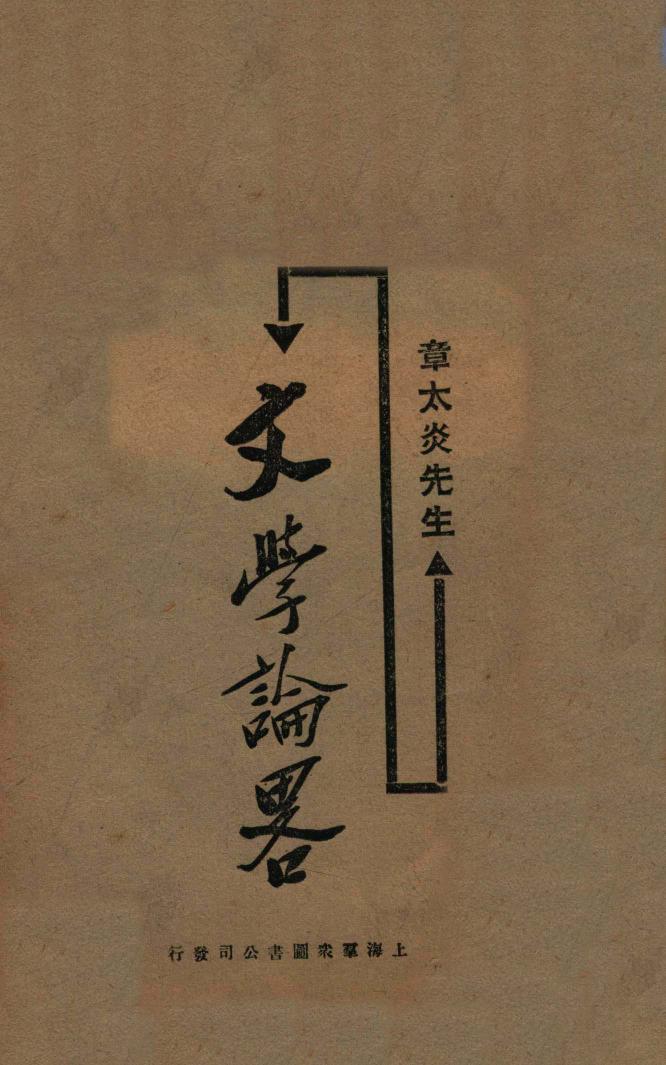 章太炎先生
文學論畧
上海羣衆圖書公司發行